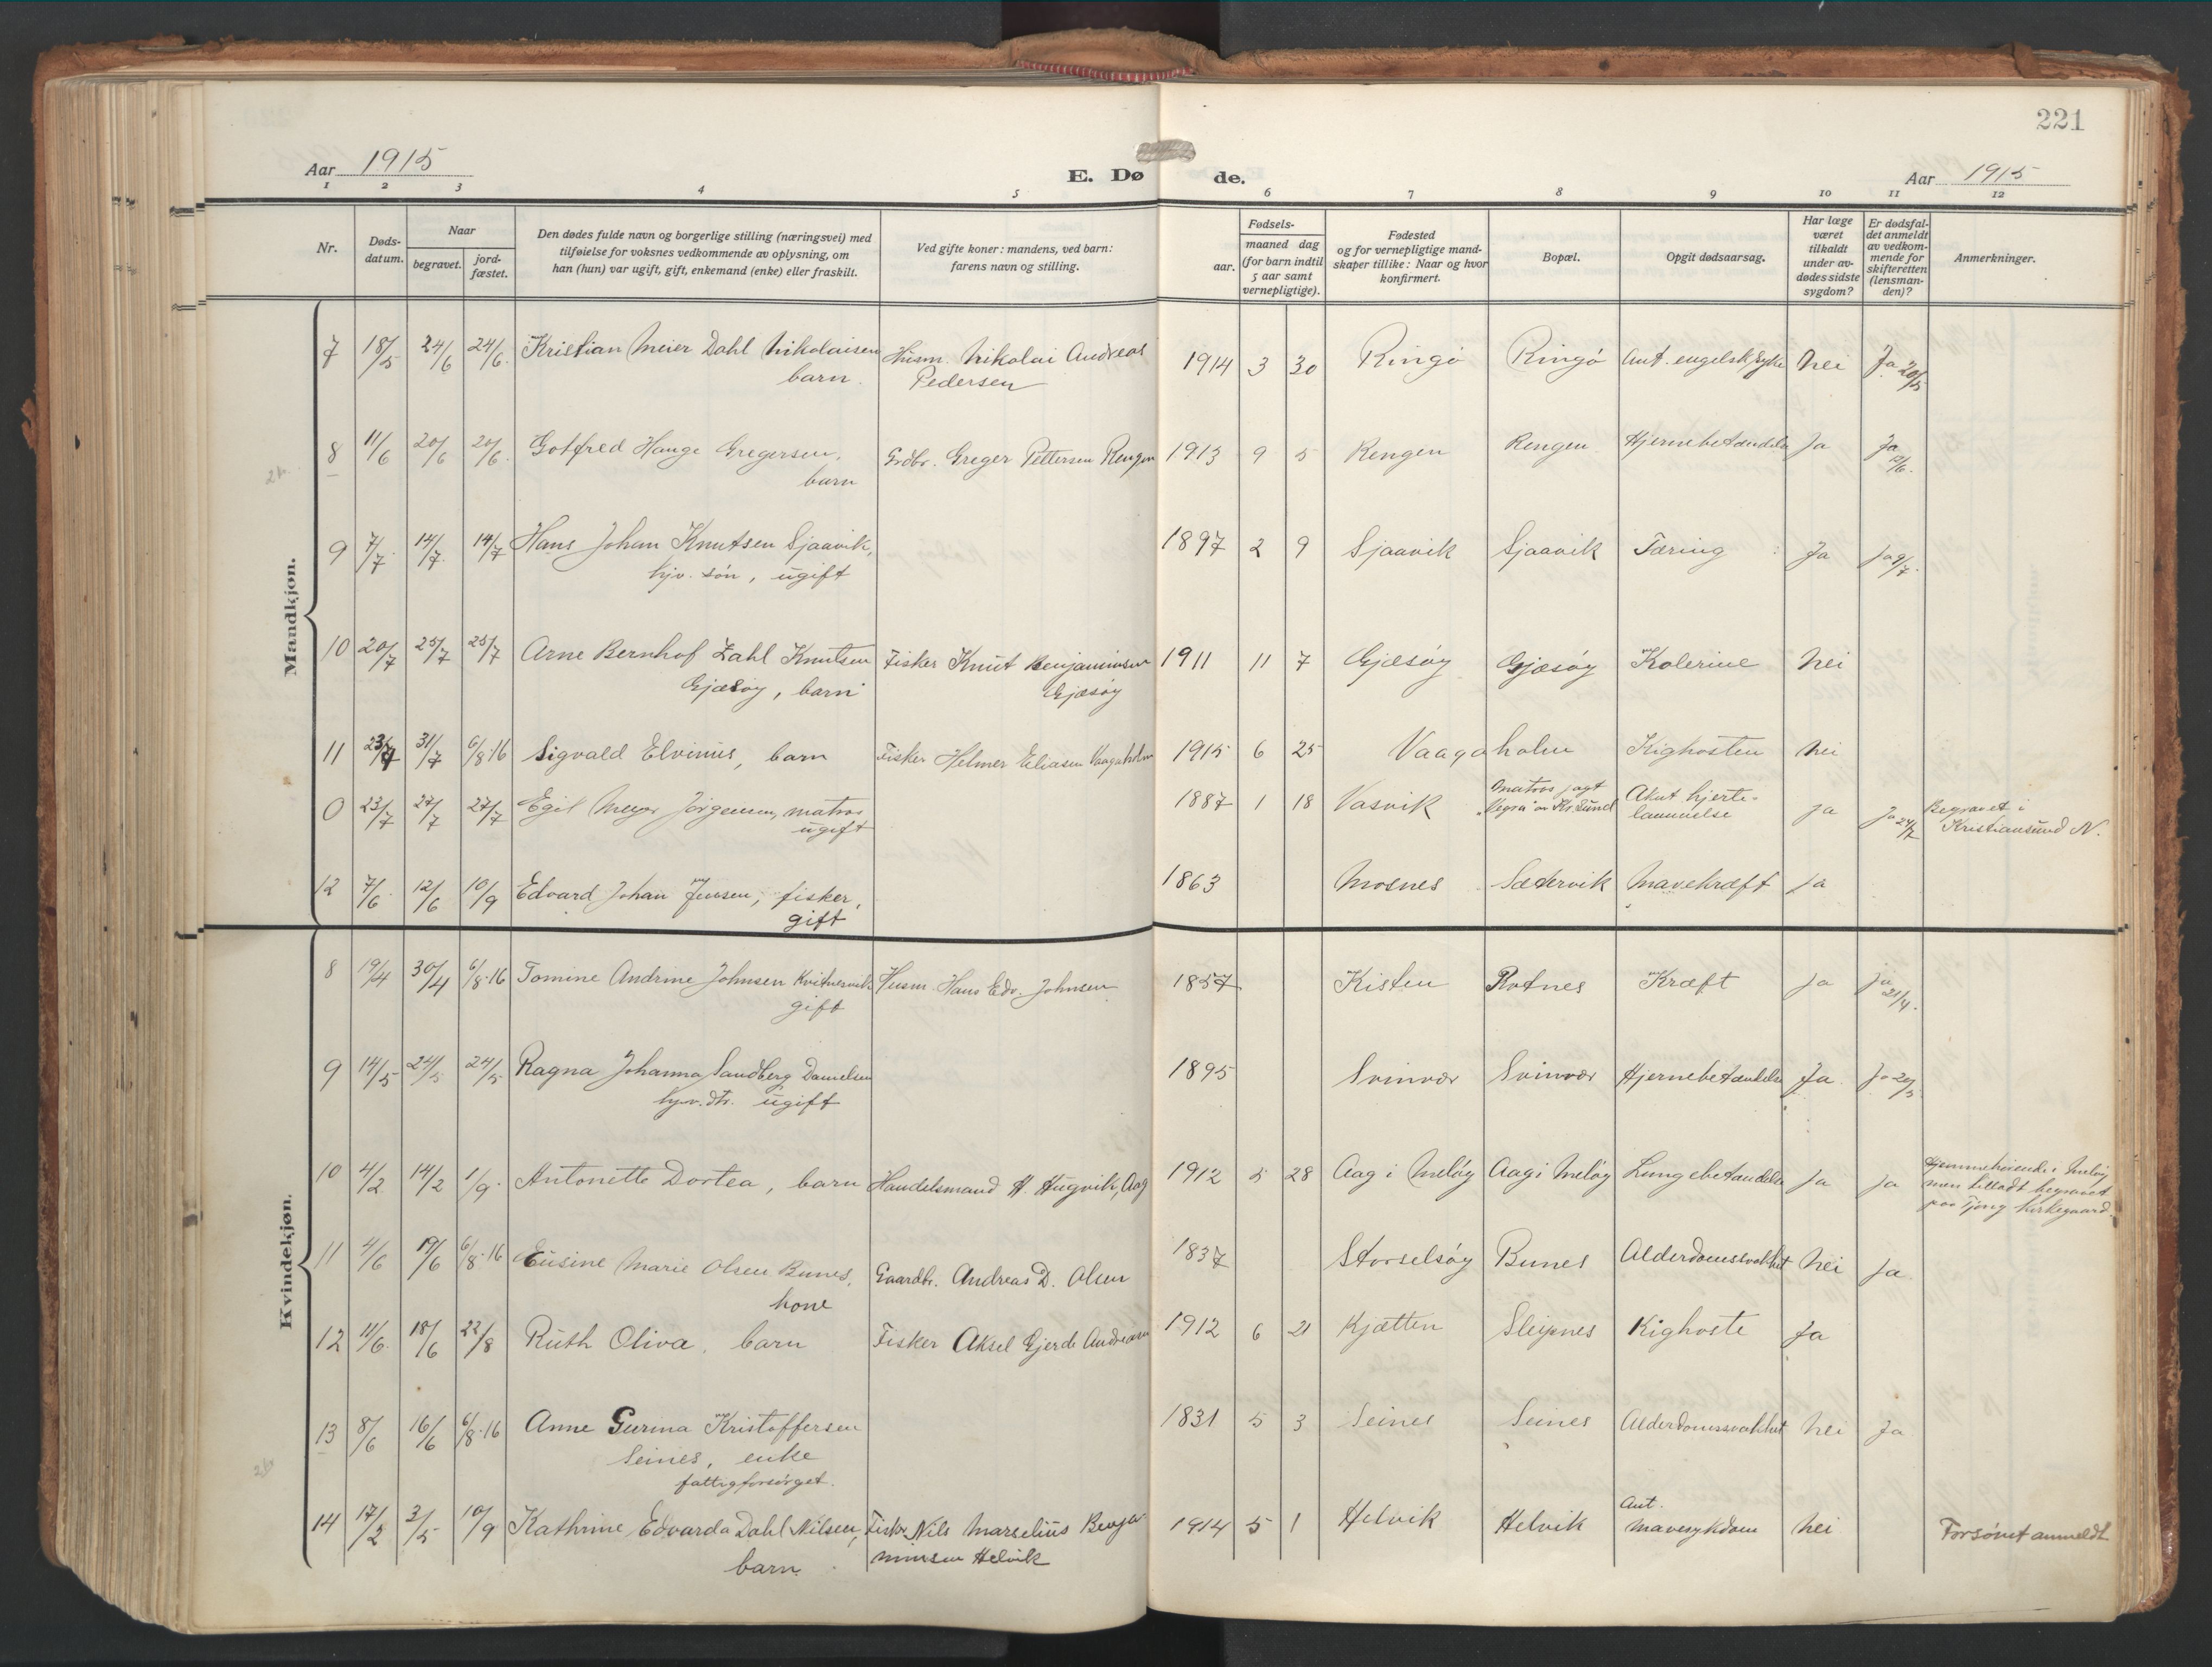 221
Aar 1915
E. Dø
de.
Aar 1915
1 2 3 4 5 6 7 8 9 10 11 12
Nr.
Døds-
datum.
Naar
begravet.
jord-
fæstet.
Den dødes fulde navn og borgerlige stilling (næringsvei) med
tilføielse for voksnes vedkommende av oplysning, om
han (hun) var ugift, gift, enkemand (enke) eller fraskilt.
Ved gifte koner: mandens, ved barn:
farens navn og stilling.
Fødsels-
aar.
maaned dag
(for barn indtil
5 aar samt
vernepligtige).
Fødested
og for vernepligtige mand-
skaper tillike: Naar og hvor
konfirmert.
Bopæl.
Opgit dødsaarsag.
Har læge
været
tilkaldt
under av-
dødes sidste
sygdom?
Er dødsfal-
det anmeldt
av vedkom-
mende for
skifteretten
(lensman-
den)?
Anmerkninger.
Mandkjøn.
7 18/5 24/6 24/6 Kristian Meier Dahl Nikolaisen Husm. Nikolai Andreas 1914 3 30 Ringö Ringö Ant. engelsk syke Nei Ja 20/5
barn. Pedersen
8 11/6 20/6 20/6 Gotfred Hauge Gregersen, Grdbr. Greger Pettersen Rengen 1913 9 5 Rengen Rengen Hjernebetændelse Ja Ja 12/6.
barn
9 7/7 14/7 14/7 Hans Johan Knutsen Sjaavik, 1897 2 9 Sjaavik Sjaavik Tæring Ja Ja 9/7.
hjv. søn, ugift
10 20/7 25/7 25/7 Arne Bernhof Zahl Knutsen Fisker Knut Benjaminsen 1911 11 7 Gjæsöy Gjæsöy Kolerine Nei
Gjæsöy, barn Gjæsöy
11 23/7 31/7 6/8.16 Sigvald Elvinus, barn Fisker Helmer Eliasen Vaagaholm 1915 6 25 Vaagaholm Kighosten Nei
0 23/7 27/7 27/7 Egil Meyer Jörgensen, matros 1887 1 18 Vasvik Matros jagt Akut hjerte- Ja Ja 24/7 Begravet i
ugift "Vegra" av Kr.sund lammelse Kristiansund N.
12 7/6 12/6 10/9 Edvard Johan Jensen, fisker, 1863 Mosnes Sætervik Mavekræft Ja
gift
Kvindekjøn.
8 19/4 30/4 6/8.16 Tomine Andrine Johnsen Kvitnesvik Husm. Hans Edv. Johnsen 1857 Kisten Rotnes Kræft Ja Ja 21/4.
gift
9 14/5 24/5 24/5 Ragna Johanna Sandberg Danielsen 1895 Svinvær Svinvær Hjernebetændelse Ja. Ja 20/5
hjv. dtr. ugift
10 4/2 14/2 1/9. Antonette Dortea, barn Handelsmand H. Hugvik, Aag 1912 5 28 Aag i Melöy Aag i Melöy Lungebetændelse Ja Ja Hjemmehørende i Melöy
men tilladt begravet
paa Tjong kirkegaard.
11 4/6 19/6 6/8.16 Eusine Marie Olsen Bunes, Gaardbr. Andreas D. Olsen 1837 Storselsöy Bunes Alderdomssvakhet Nei Ja
kone
12 11/6. 18/6 22/8 Ruth Oliva, barn Fisker Aksel Gjerde Andreasen 1912 6 21 Kjætten Sleipnes Kighoste Ja
13 8/6 16/6 6/8.16 Anne Gurina Kristoffersen 1831 5 3 Seines Seines Alderdomssvakhet Nei Ja
Seines, enke
fattigforsørget.
14 17/2 3/5 10/9 Kathrine Edvarda Dahl Nilsen, Fisker Nils Marselius Benja- 1914 5 1 Helvik Helvik Ant. mavesykdom Nei Forsömt anmeldt
barn. minsen Helvik